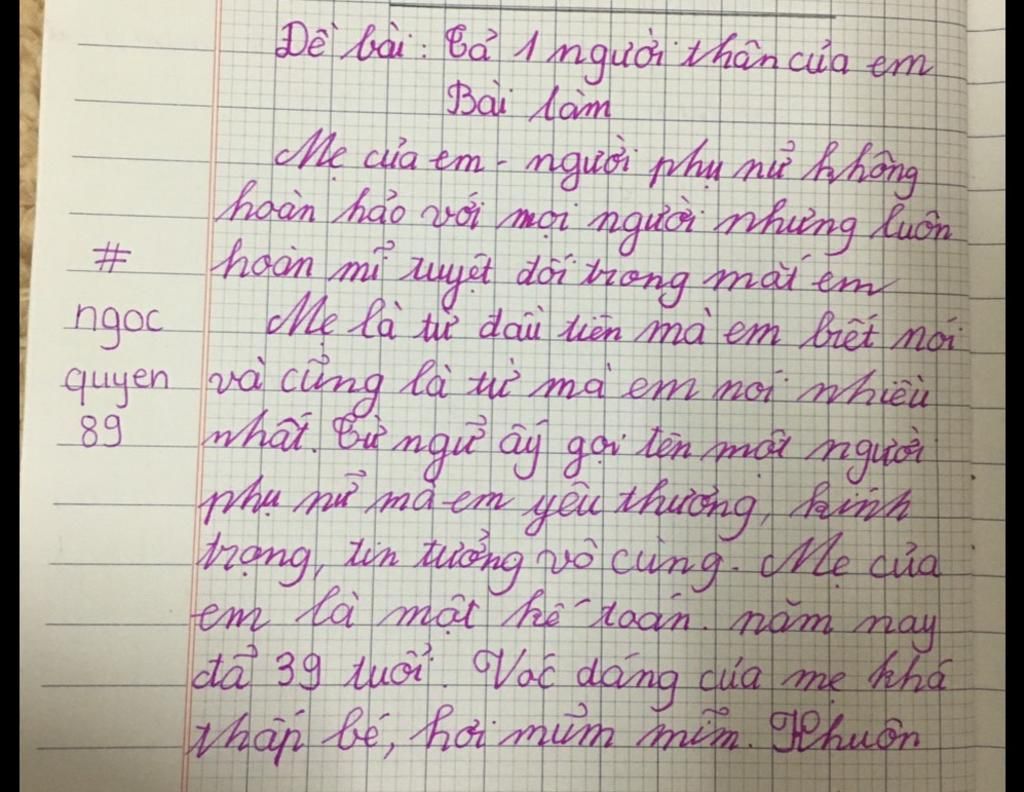 Đề bài: Tả 1 người thân của em
Bài làm
Mẹ của em - người phụ nữ không
hoàn hảo với mọi người nhưng luôn
hoàn mĩ tuyệt đối trong mắt em
Mẹ là từ đầu tiên mà em biết nói
và cũng là từ mà em nói nhiều
nhất. Từ ngữ ấy gọi tên một người
phụ nữ mà em yêu thương, kính
trọng, tin tưởng vô cùng. Mẹ của
em là một kế toán. năm nay
đã 39 tuổi. Vóc dáng của mẹ khá
thấp bé, hơi mũm mĩm. Khuôn
#
ngoc
quyen
89